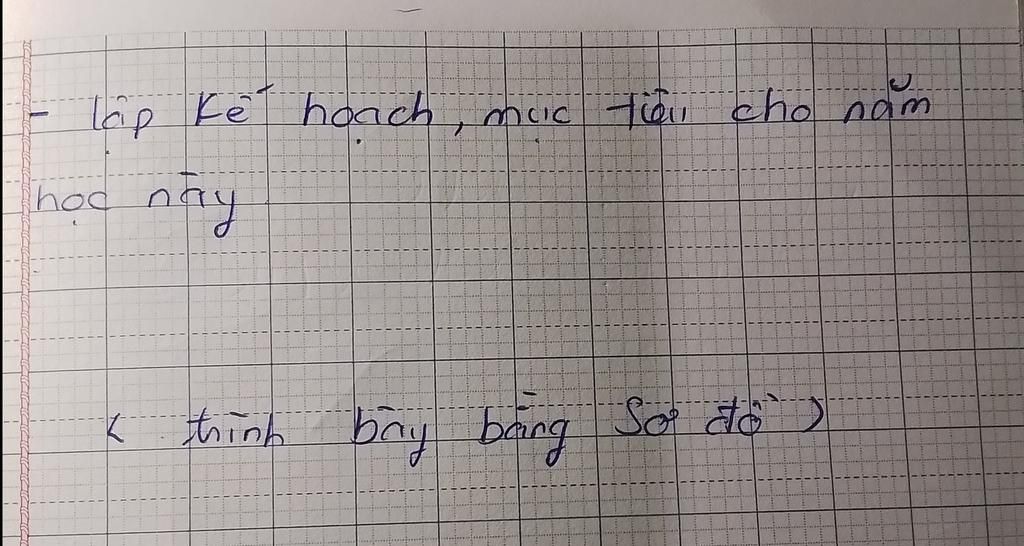 - lập kế hoạch, mục tiêu cho năm
học này
( trình bày bằng Sơ đồ )